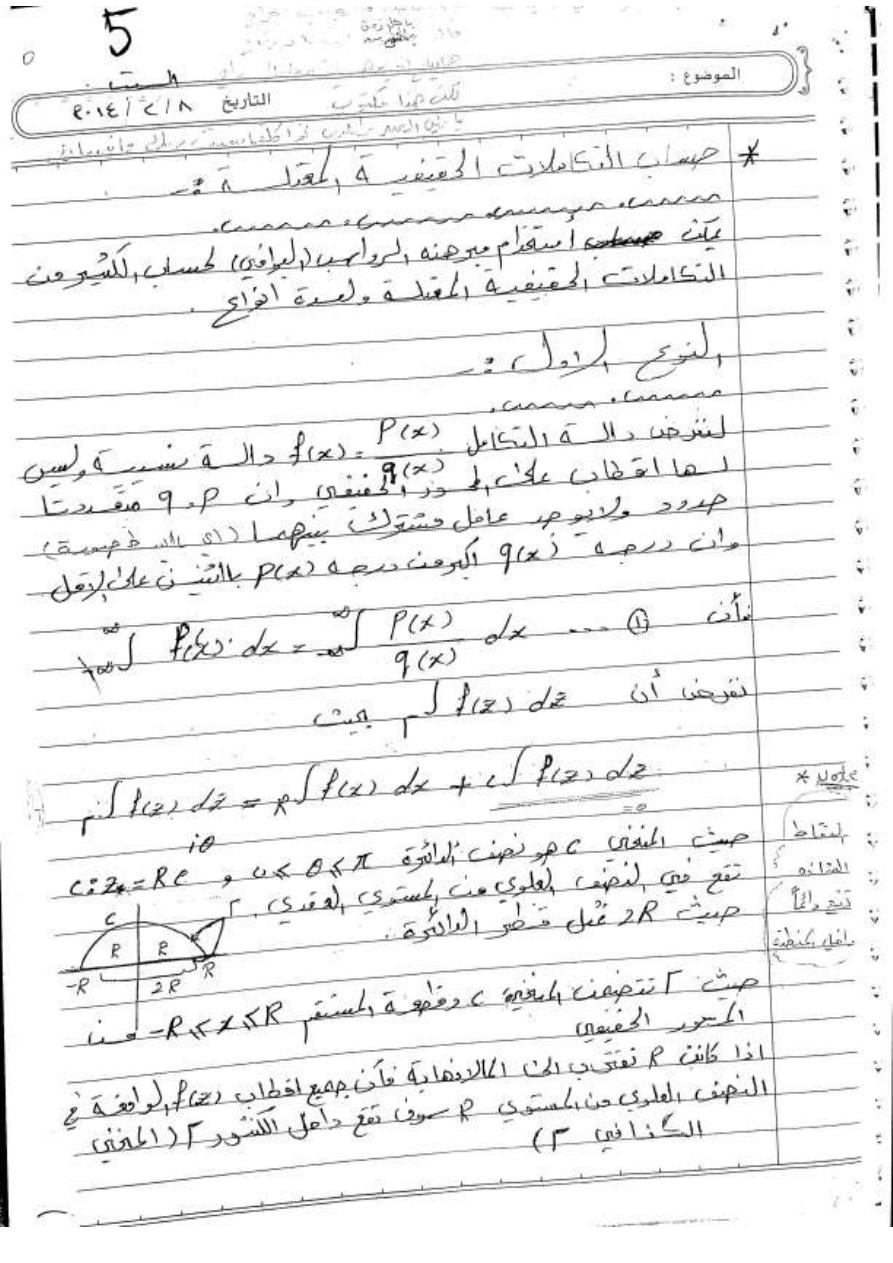 5
الموضوع :
السبت
التاريخ ٢٠١٤/٢/٨
* حساب التكاملات الحقيقية المعتلة :-
يمكن استخدام مبرهنه الرواسب (البواقي) لحساب الكثير من
التكاملات الحقيقية المعتلة ولعدة انواع .
النوع الاول :-
لنفرض دالة التكامل f(x) = P(x)/q(x) دالة نسبية وليس
لها اقطاب على المحور الحقيقي وان q ، P متعددتا
حدود ولا يوجد عامل مشترك بينهما (اي بابسط صورة)
وان درجة q(x) اكبر من درجه P(x) باثنين على الاقل
فأن ∫ f(x) dx = ∫ P(x)/q(x) dx --- ①
نفرض أن ∫ f(z) dz بحيث
Γ∫ f(z) dz = R∫ f(x) dx + c∫ f(z) dz
=0
* Note
النقاط
تقع دائماً
داخل المنطقة
حيث المنحني C هو نصف الدائرة 0≤θ≤π و C: z = Re^{iθ}
تقع في النصف العلوي من المستوي العقدي .
حيث 2R تمثل قطر الدائرة .
C
Γ
R R
-R 2R R
حيث Γ تتضمن المنحني C وقطعة المستقيم -R≤x≤R من
المحور الحقيقي
اذا كانت R تقترب الى المالانهاية فأن جميع اقطاب f(z) الواقعة في
النصف العلوي من المستوي R سوف تقع داخل الكنتور Γ (المنحني
الكنافي Γ)